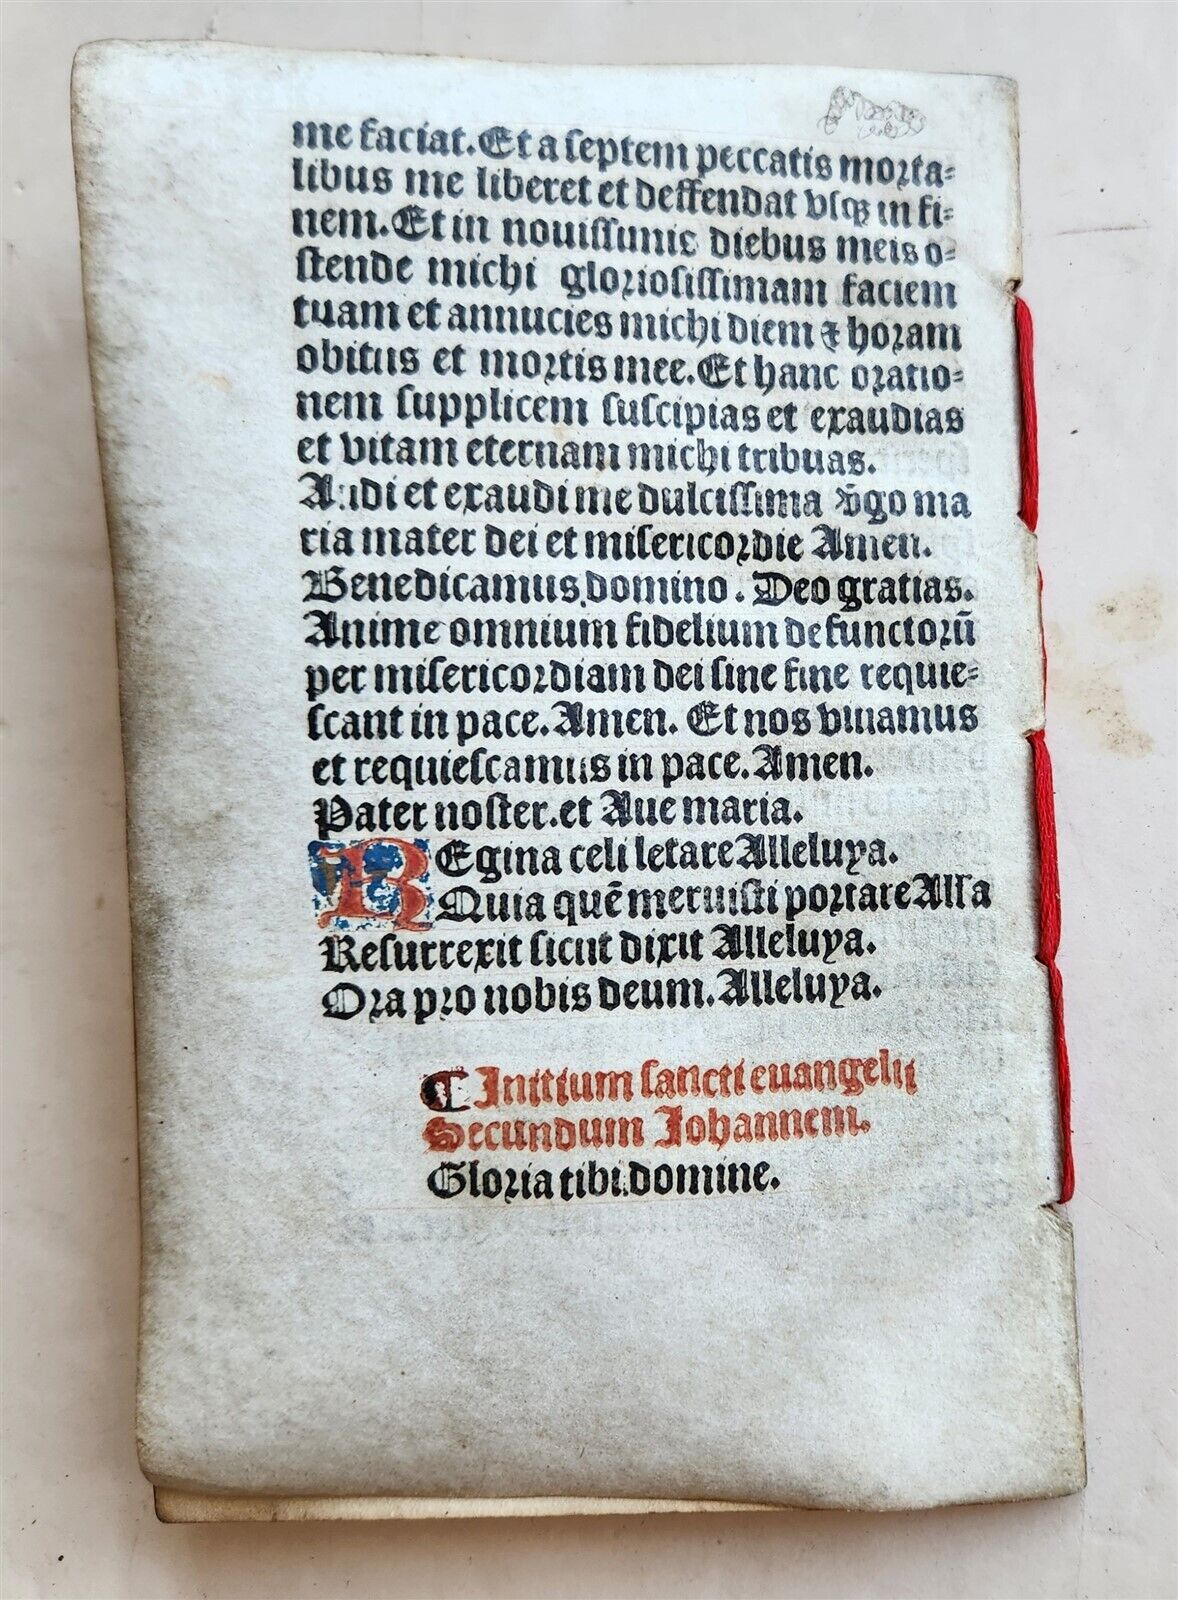 me faciat. Et a septem peccatis morta=
libus me liberet et deffendat vsqꝫ in fi=
nem. Et in nouissimis diebus meis o=
stende michi gloriosissimam faciem
tuam et annucies michi diem ⁊ horam
obitus et mortis mee. Et hanc oratio=
nem supplicem suscipias et exaudias
et vitam eternam michi tribuas.
Audi et exaudi me dulcissima v̄go ma
ria mater dei et misericordie Amen.
Benedicamus domino. Deo gratias.
Anime omnium fidelium defunctorū
per misericordiam dei sine fine requie=
scant in pace. Amen. Et nos viuamus
et requiescamus in pace. Amen.
Pater noster. et Aue maria.
REgina celi letare Alleluya.
Quia quē meruisti portare Alla
Resurrexit sicut dixit Alleluya.
Ora pro nobis deum. Alleluya.
¶ Initium sancti euangelij
Secundum Johannem.
Gloria tibi domine.